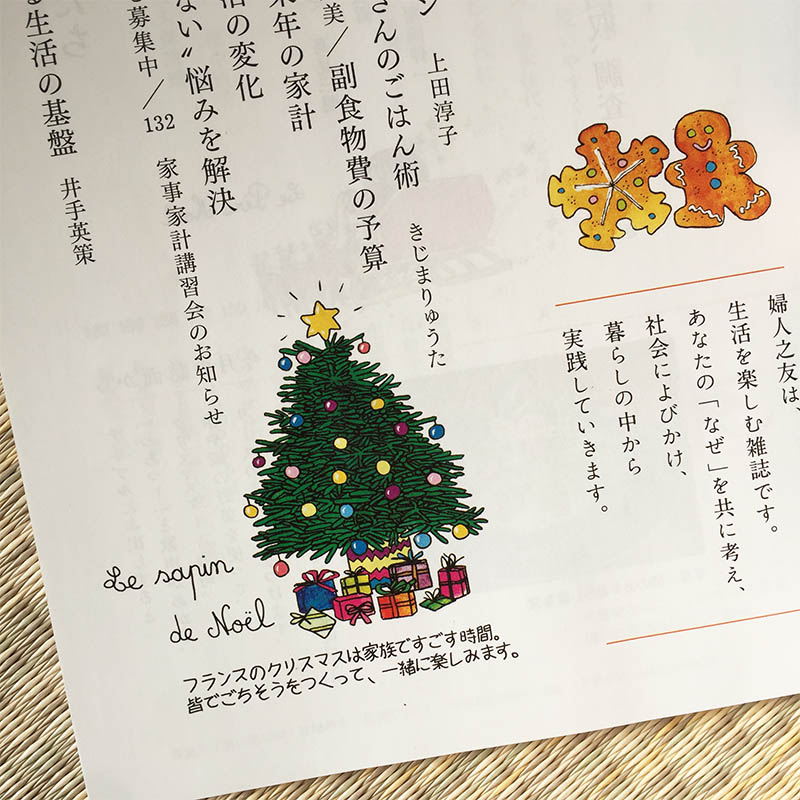 婦人之友は、
生活を楽しむ雑誌です。
あなたの「なぜ」を共に考え、
社会によびかけ、
暮らしの中から
実践していきます。
上田淳子
さんのごはん術 きじまりゅうた
美／副食物費の予算
来年の家計
活の変化
ない〟悩みを解決
募集中／132 家事家計講習会のお知らせ
る生活の基盤 井手英策
Le sapin
de Noël
フランスのクリスマスは家族ですごす時間。
皆でごちそうをつくって、一緒に楽しみます。